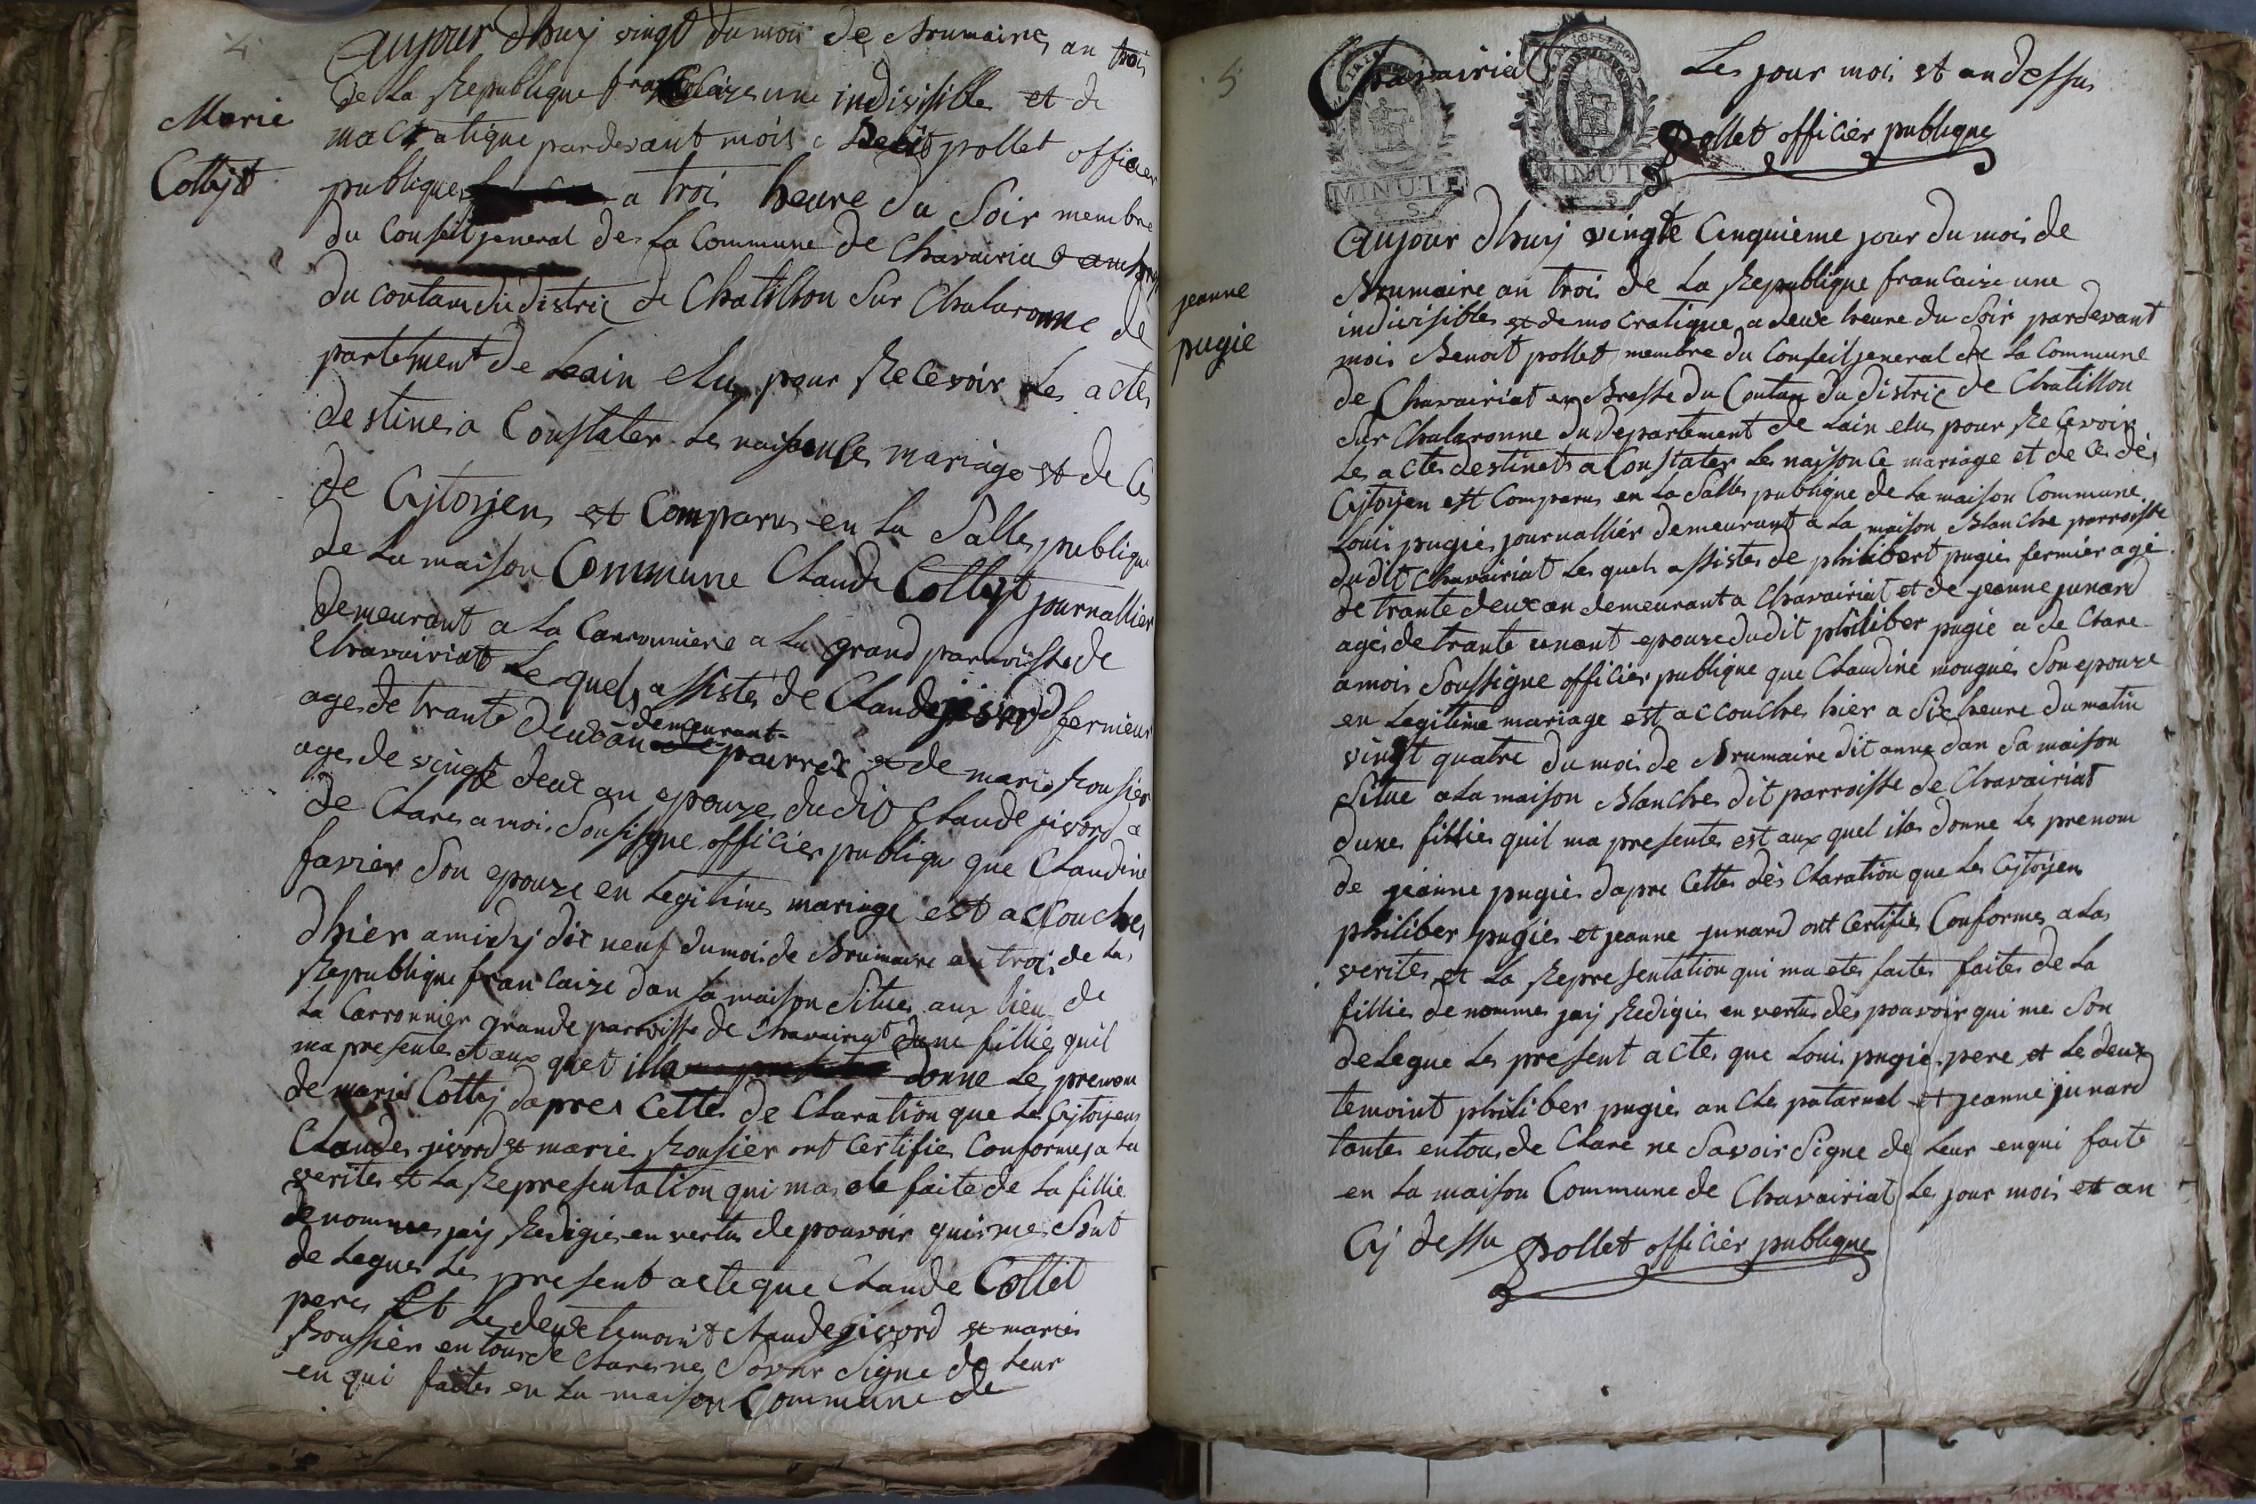 4
Marie
Colleyt
aujour dhuij vingt du mois de Brumaire, an trois
de La Republique francaize une indivisible et de
mocratique pardevant mois Benoit pollet officier
publique a troi heure du Soir membre
du Conseil jeneral de La Commune de Chavairiat
du contam du distric de Chatillon Sur Chalaronne de
partement de Leain elu pour Recevoir Les actes
destines a Constater Les naissances mariage et de Ces
de Cijtoijens et Comparus en La Salle publique
de La maison Commune Claude Colleyt journallier
demeurant a La Carronniere a La grand parroisse de
Chavairiat Le quel assistés de Claude jivord fermier
ages de trante deux an demeurant a parrex et de marie Rousier
ages de vingt deux an epouze dudit Claude jivord a
de Clares a mois Sousigne officier publiqu que Claudine
favier Son epouze en Legitime mariage est accouches
dhier a midij dix neuf du mois de Brumaire an trois de La
Republique francaize dan Sa maison Situes aux lieu de
La Carronnier grande parroisse de Chavairiat dune fillie quil
ma presentes et aux quel illa donne Le prenom
de marie Collej dapres Cette de Claration que Les Cijtoijens
Claudes jivord et marie Rousier ont Certifies Conformes a La
verites et La Representation qui ma ete faite de La fillie
denommes jaij Redigies en vertus de pouvoir qui me Sont
de Legues Le present acte que Claude Collet
pere Et Le deux temoint Claude jivord et maries
Roussier en tous de Clares ne Savoir Signe de Leur
en qui faites en La maison Commune de
5
Chavairiat Les jour mois et an dessus
pollet officier publique
MINUTE
MINUTE
4 S
S
jeanne
pugie
aujour dhuij vingte Cinquieme jour du mois de
Brumaire an trois de La Republique francaize une
indivisibles et democratique a deux heure du Soir pardevant
mois Benoit pollet membre du Conseil jeneral de La Commune
de Chavairiat en Bresse du Contan du distric de Chatillon
Sur Chalaronne du departement de Lain elus pour Recevoir
Les actes destinets a Constater Les naisonce mariage et de Ces des
Cijtoijen est Comparus en La Salle publique de La maison Commune
Louis pugies journallier demeurant a La maison Blanche parroisse
dudit Chavairiat Les quels assistes de philibert pugies fermier agé
de trante deux an demeurant a Chavairiat et de jeanne junard
ages de trante un ant epouze dudit philiber pugié a de Clare
a mois Soussigne officier publique que Claudine mougué Son epouze
en Legitime mariage est accouches hier a Six heure du matin
vingt quatre du mois de Brumaire dit anne dan Sa maison
Situe a La maison Blanches dit parroisse de Chavairiat
dunes fillies quil ma presentes est aux quel ila donne Le prenom
de jeanne pugies dapre Cettes dés Claration que Les Cijtoijen
philiber pugies et jeanne junard ont Certifies Conformes a La
verités et La Representation qui ma etes faites faites de La
fillies denommes jaij Redigies en vertus des pouvoir qui me Son
deLegue Le present actes que Louis pugie pere et Le deux
temoint philiber pugies oncle patarnel et jeanne junard
tantes en tous de Clare ne Savoir Signe de Leur enqui faite
en La maison Commune de Chavairiat Le jour mois et an
Cij dessu pollet officier publique